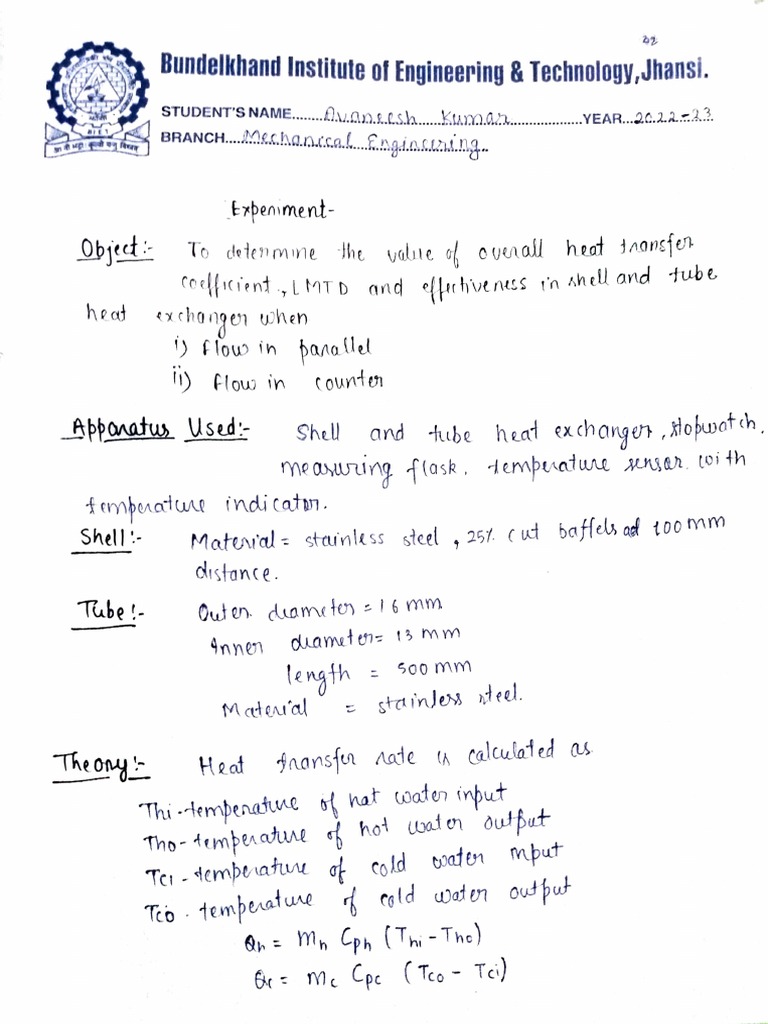 32
Bundelkhand Institute of Engineering & Technology, Jhansi.
STUDENT'S NAME....Avaneesh Kumar....YEAR...2022-23
BRANCH....Mechanical Engineering..
B I E T
Experiment-
Object:- To determine the value of overall heat transfer
coefficient, LMTD and effectiveness in shell and tube
heat exchanger when
i) flow in parallel
ii) flow in counter
Apparatus Used:- Shell and tube heat exchanger, stopwatch,
measuring flask, temperature sensor with
temperature indicator.
Shell:- Material = stainless steel, 25% cut baffels ad 100mm
distance.
Tube:- Outer diameter = 16 mm
Inner diameter= 13 mm
length = 500 mm
Material = stainless steel.
Theory:- Heat transfer rate is calculated as
Thi-temperature of hat water input
Tho-temperature of hot water output
Tci-temperature of cold water input
Tco-temperature of cold water output
Qh = Mh Cph (Thi-Tho)
Qc = Mc Cpc (Tco - Tci)